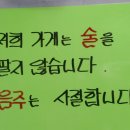 저희 가게는 술을
팔지 않습니다.
음주는 사절합니다